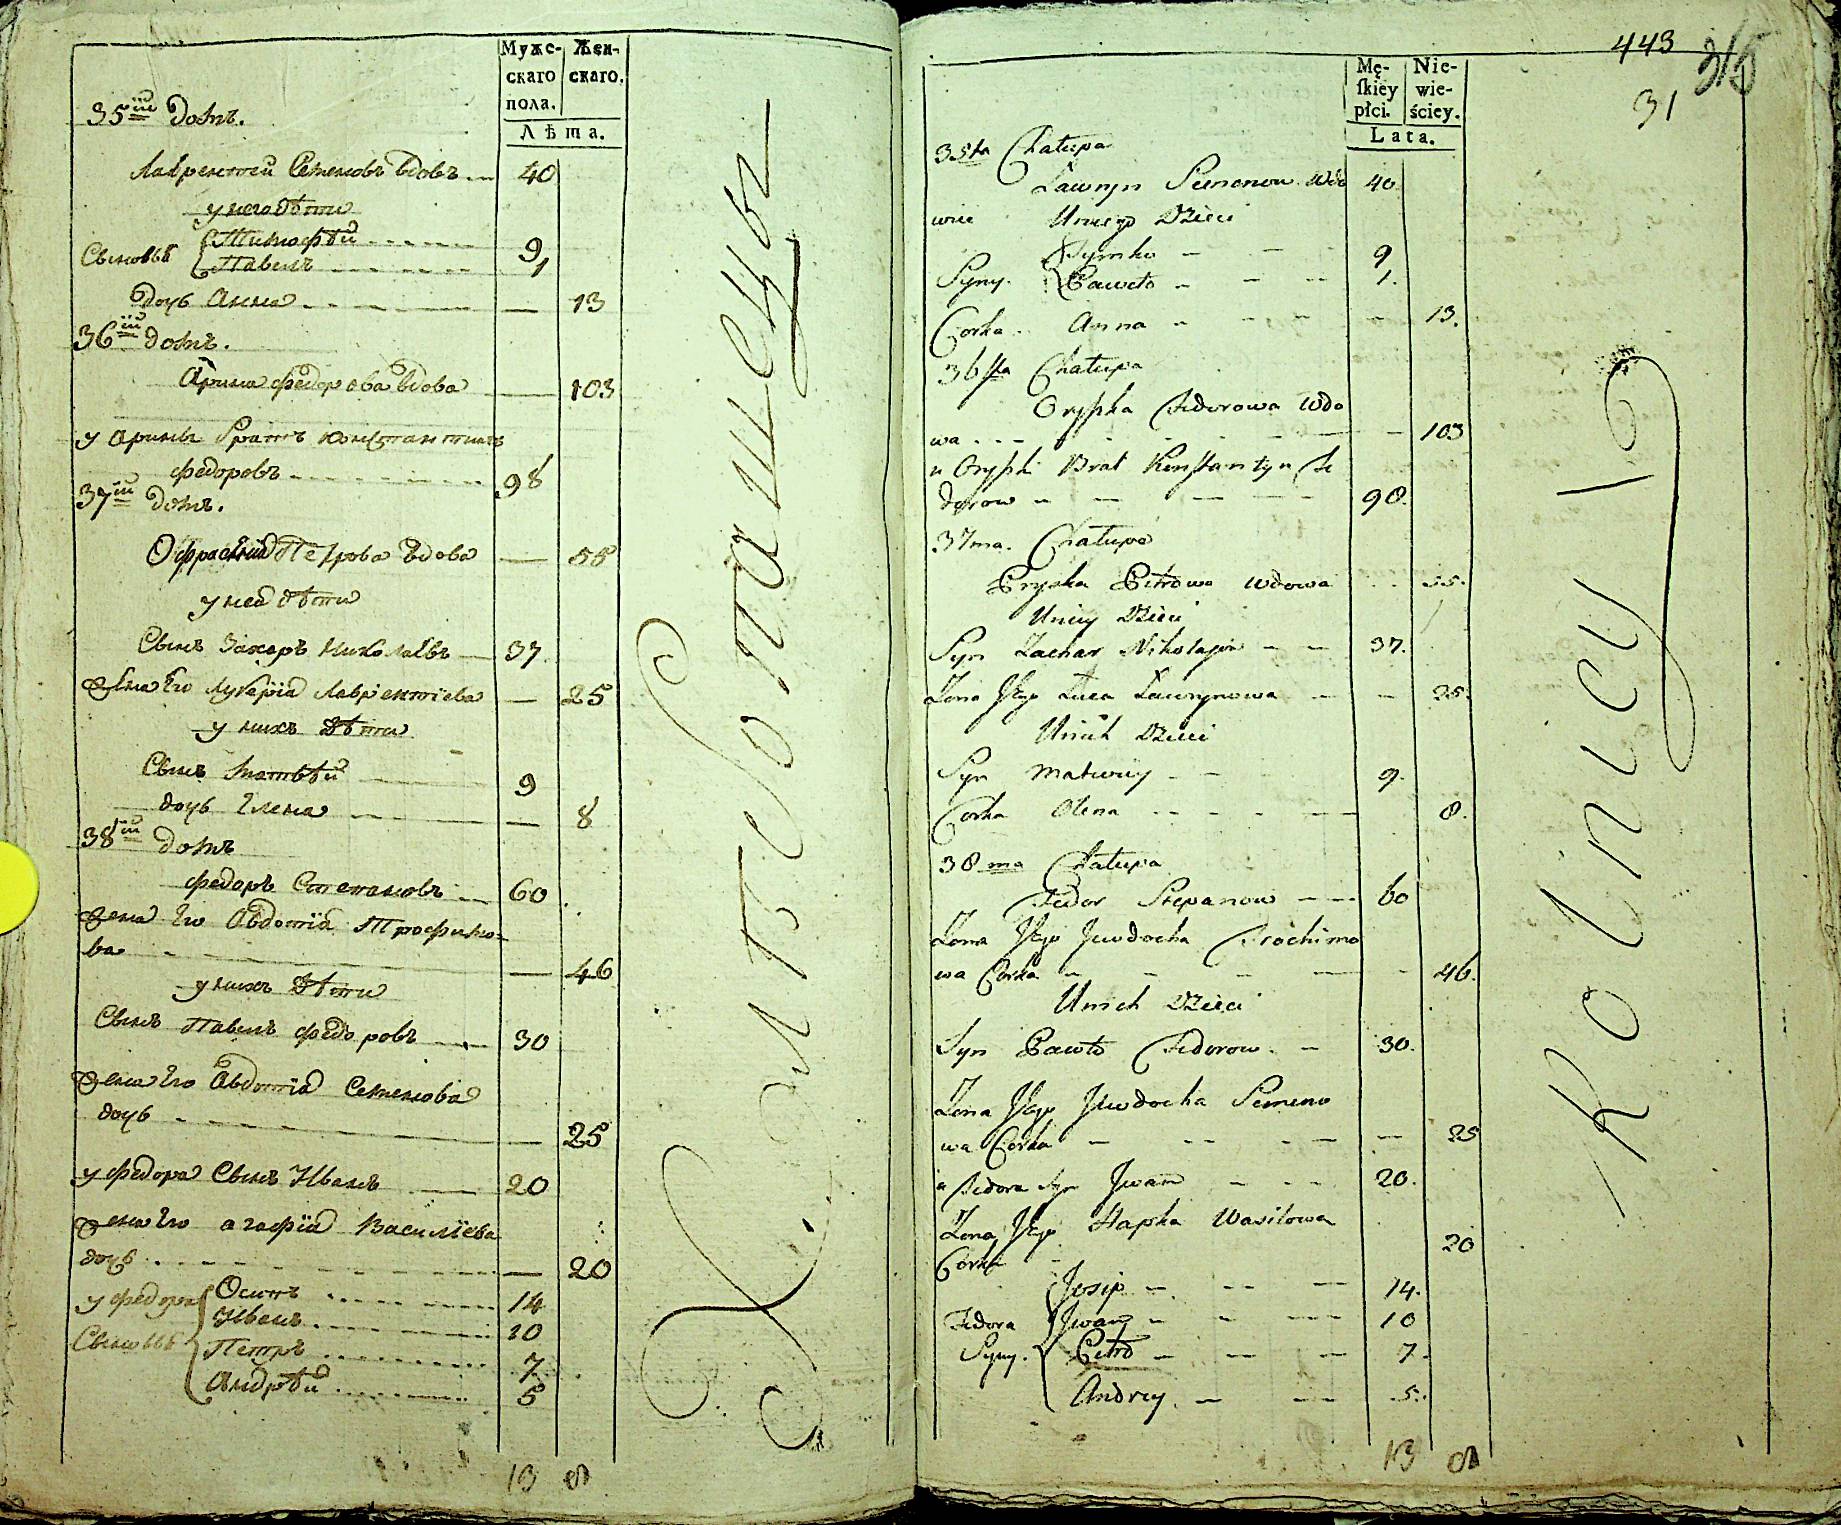 Муже-
скаго
пола.
Жен-
скаго.
Лѣта.
35ій домъ.
Лаврентей Семеновъ вдовъ 40
у него дѣти
Сыновья
Тимофѣй 9
Павелъ 1
дочь Анна — 13
36ій домъ.
Арина Федорова вдова — 103
у Арины братъ Константинъ
Федоровъ 98
37ій домъ.
Петрова вдова — 55
у ней дѣти
Сынъ Захаръ Николаевъ 37
Жена Его Лукерїа Лаврентїева — 25
у нихъ дѣти
Сынъ Матвѣй 9
дочь Елена — 8
38ій домъ
Федоръ Степановъ 60
Жена Его Авдотїа Трофимо-
ва — 46
у нихъ дѣти
Сынъ Павелъ Федоровъ 30
Жена Его Авдотїа Семенова
дочь — 25
у Федора Сынъ Иванъ 20
Жена Его Агафїа Василїева
дочь — 20
у Федора
Сыновья
Осипъ 14
Иванъ 10
Петръ 7
Андрѣй 5
13 8
Хлѣбопашецы
443
315
31
Mę-
skiey
płci.
Nie-
wie-
ściey.
Lata.
35ta Chałupa
Ławryn Semenow Wdo 40
wiec Uniego Dzieci
Syny.
Tymko 9
Pawło 1.
Corka Anna 13.
36sta Chałupa
Oryszka Fedorowa Wdo
wa 103
u Oryszki Brat Konstantyn Fe
dorow 98.
37ma. Chałupa
Pryska Petrowa Wdowa 55.
Uniey Dzieci
Syn Zachar Nikołajew 37.
Zona Jego Ławrynowa 25.
Unich Dzieci
Syn Matwiey 9.
Corka Olena 8.
38ma Chałupa
Fedor Stepanow 60
Zona Jego Jewdocha Trochimo
wa Corka 46.
Unich Dzieci
Syn Pawło Fedorow 30.
Zona Jego Jewdocha Semeno
wa Corka 25
u Fedora Syn Iwan 20.
Zona Jego Hapka Wasilowa
Corka 20
Fedora
Syny.
Josip 14.
Iwan 10
Petro 7.
Andrey 5.
13 8
Rolnicy